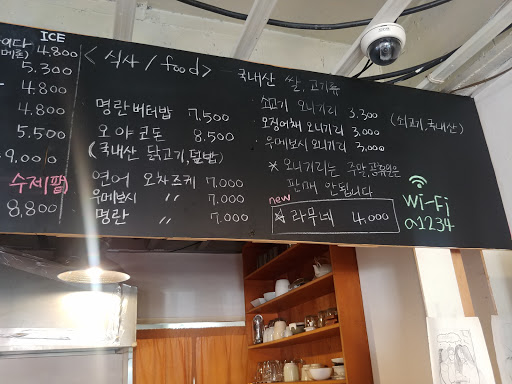 ICE
4,800
5.300
4.800
4.800
5,500
9,000
수제팜
8,800
<식사/food>
명란버터밥 7,500
오야코돈 8,500
(국내산 닭고기, 덮밥)
연어 오차즈케 7,000
우메보시 〃 7.000
명란 〃 7.000
국내산 쌀, 고기류
쇠고기 오니기리 3,300
오징어채 오니기리 3,000
우메보시 오니기리 3,000
(쇠고기, 국내산)
* 오니기리는 주말, 공휴일은
판매 안됩니다
new
라무네 4,000
Wi-Fi
a1234